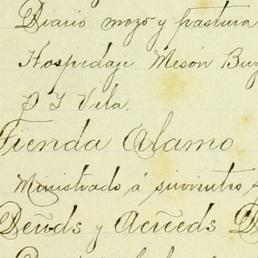 Diario mozo y pastura
Hospedaje Mesón
P I Vela.
Tienda Alamo
Ministrado á sirvientes
Deuds y Acreeds D